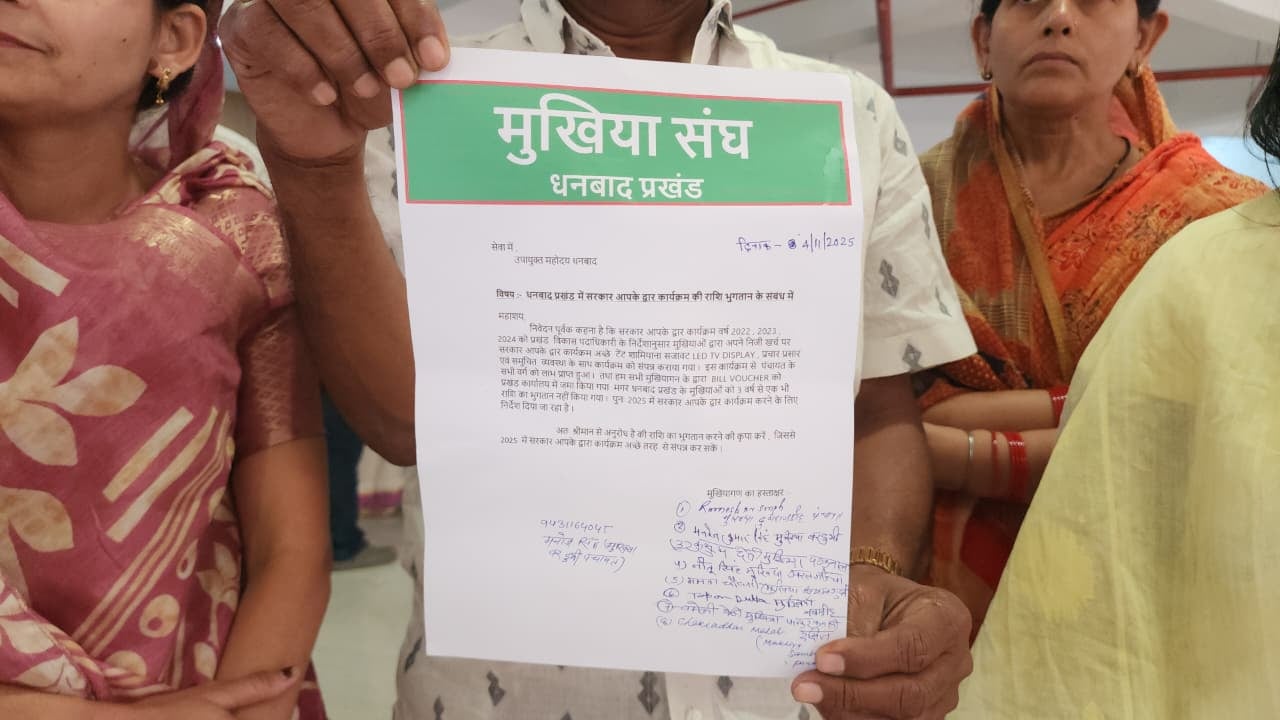 मुखिया संघ
धनबाद प्रखंड
सेवा में ,
दिनाक - 4/11/2025
उपायुक्त महोदय धनबाद
विषय :- धनबाद प्रखंड में सरकार आपके द्वार कार्यक्रम की राशि भुगतान के संबंध में
महाशय,
निवेदन पूर्वक कहना है कि सरकार आपके द्वार कार्यक्रम वर्ष 2022 , 2023 ,
2024 को प्रखंड विकास पदाधिकारी के निर्देशानुसार मुखियाओं द्वारा अपने निजी खर्च पर
सरकार आपके द्वार कार्यक्रम अच्छे टेंट शामियाना सजावट LED TV DISPLAY , प्रचार प्रसार
एवं समुचित व्यवस्था के साथ कार्यक्रम को संपन्न कराया गया। इस कार्यक्रम से पंचायत के
सभी वर्ग को लाभ प्राप्त हुआ। तथा हम सभी मुखियागन के द्वारा BILL VOUCHER को
प्रखंड कार्यालय में जमा किया गया मगर धनबाद प्रखंड के मुखियाओं को 3 वर्ष से एक भी
राशि का भुगतान नहीं किया गया। पुनः 2025 में सरकार आपके द्वार कार्यक्रम करने के लिए
निर्देश दिया जा रहा है।
अतः श्रीमान से अनुरोध है की राशि का भुगतान करने की कृपा करें , जिससे
2025 में सरकार आपके द्वारा कार्यक्रम अच्छे तरह से संपन्न कर सकें।
मुखियागण का हस्ताक्षर
① Ramesh singh
② मुखिया
9431164045
मनोज
देवी मुखिया
4) नीतू सिंह मुखिया
(5)
⑥ Dutta मुखिया
देवी मुखिया
Mahato
(Mukhiya